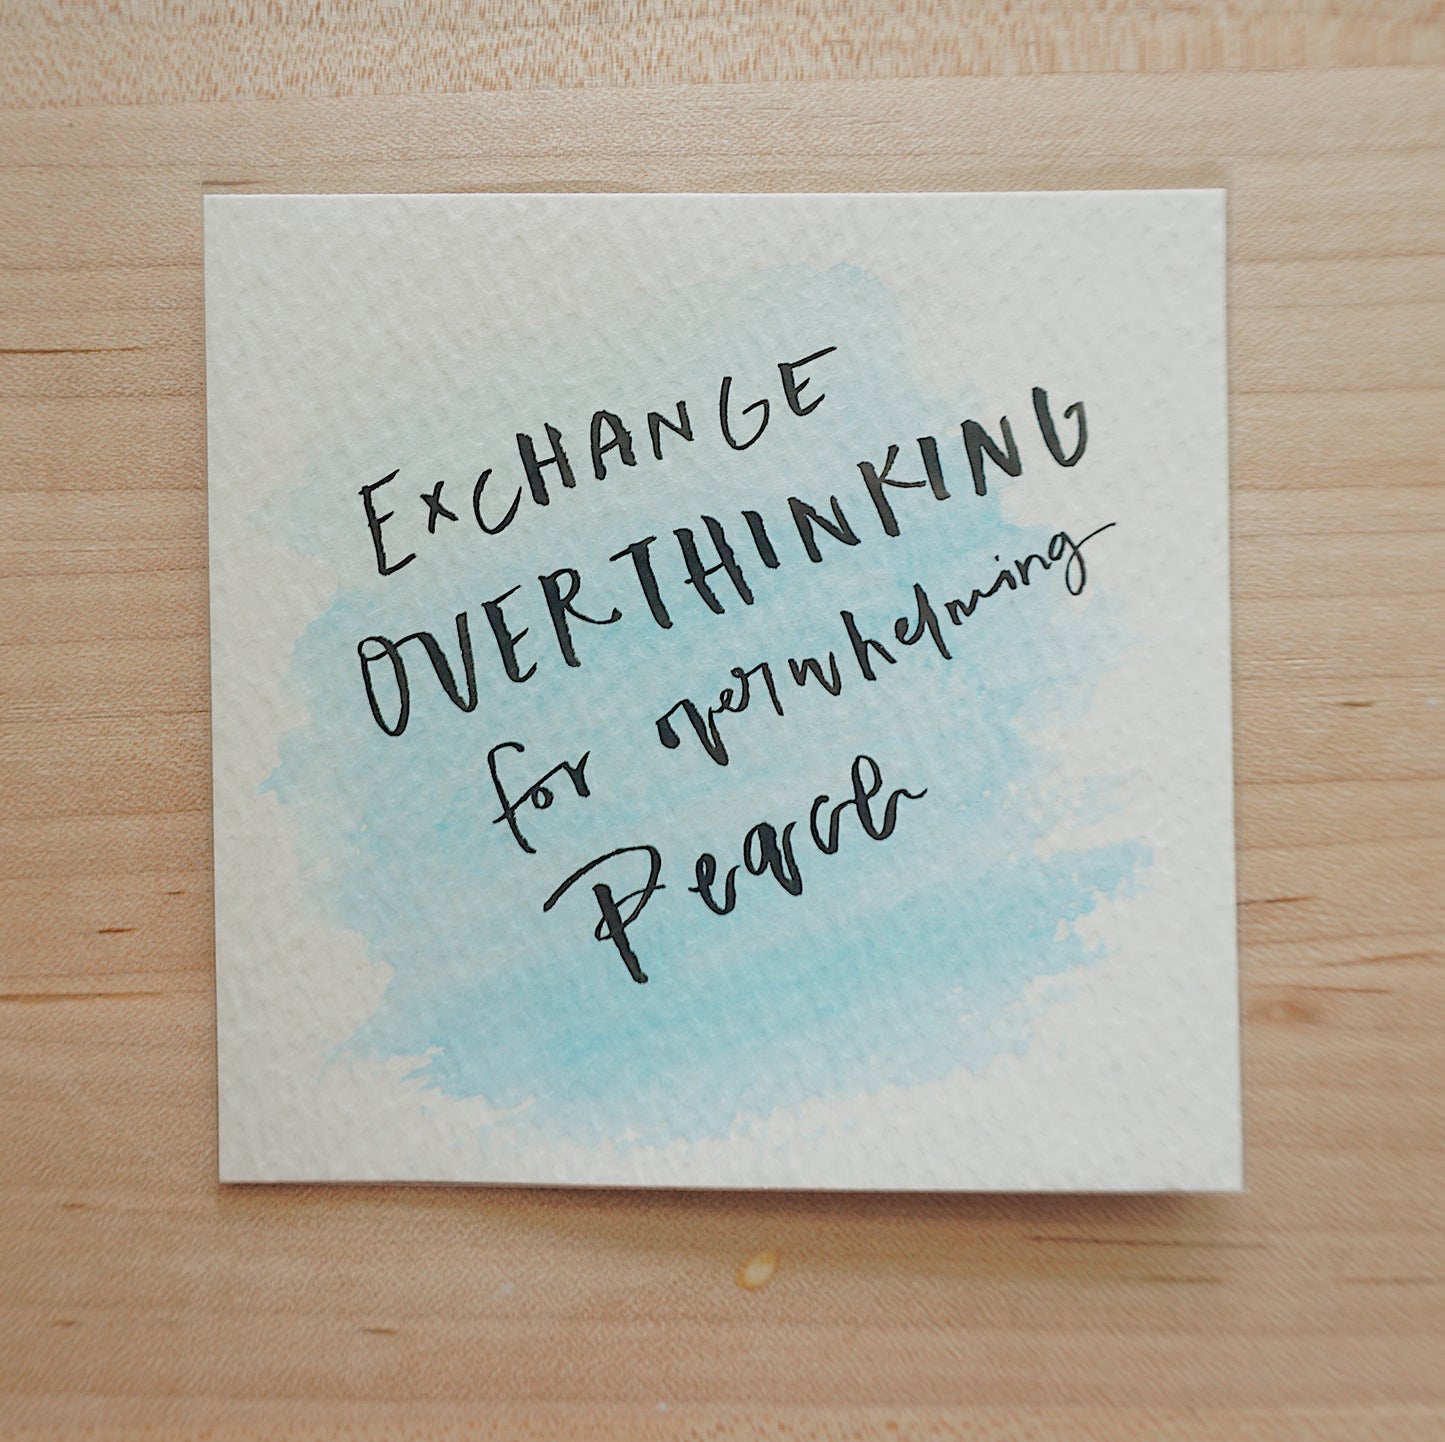 EXCHANGE
OVERTHINKING
for overwhelming
Peace